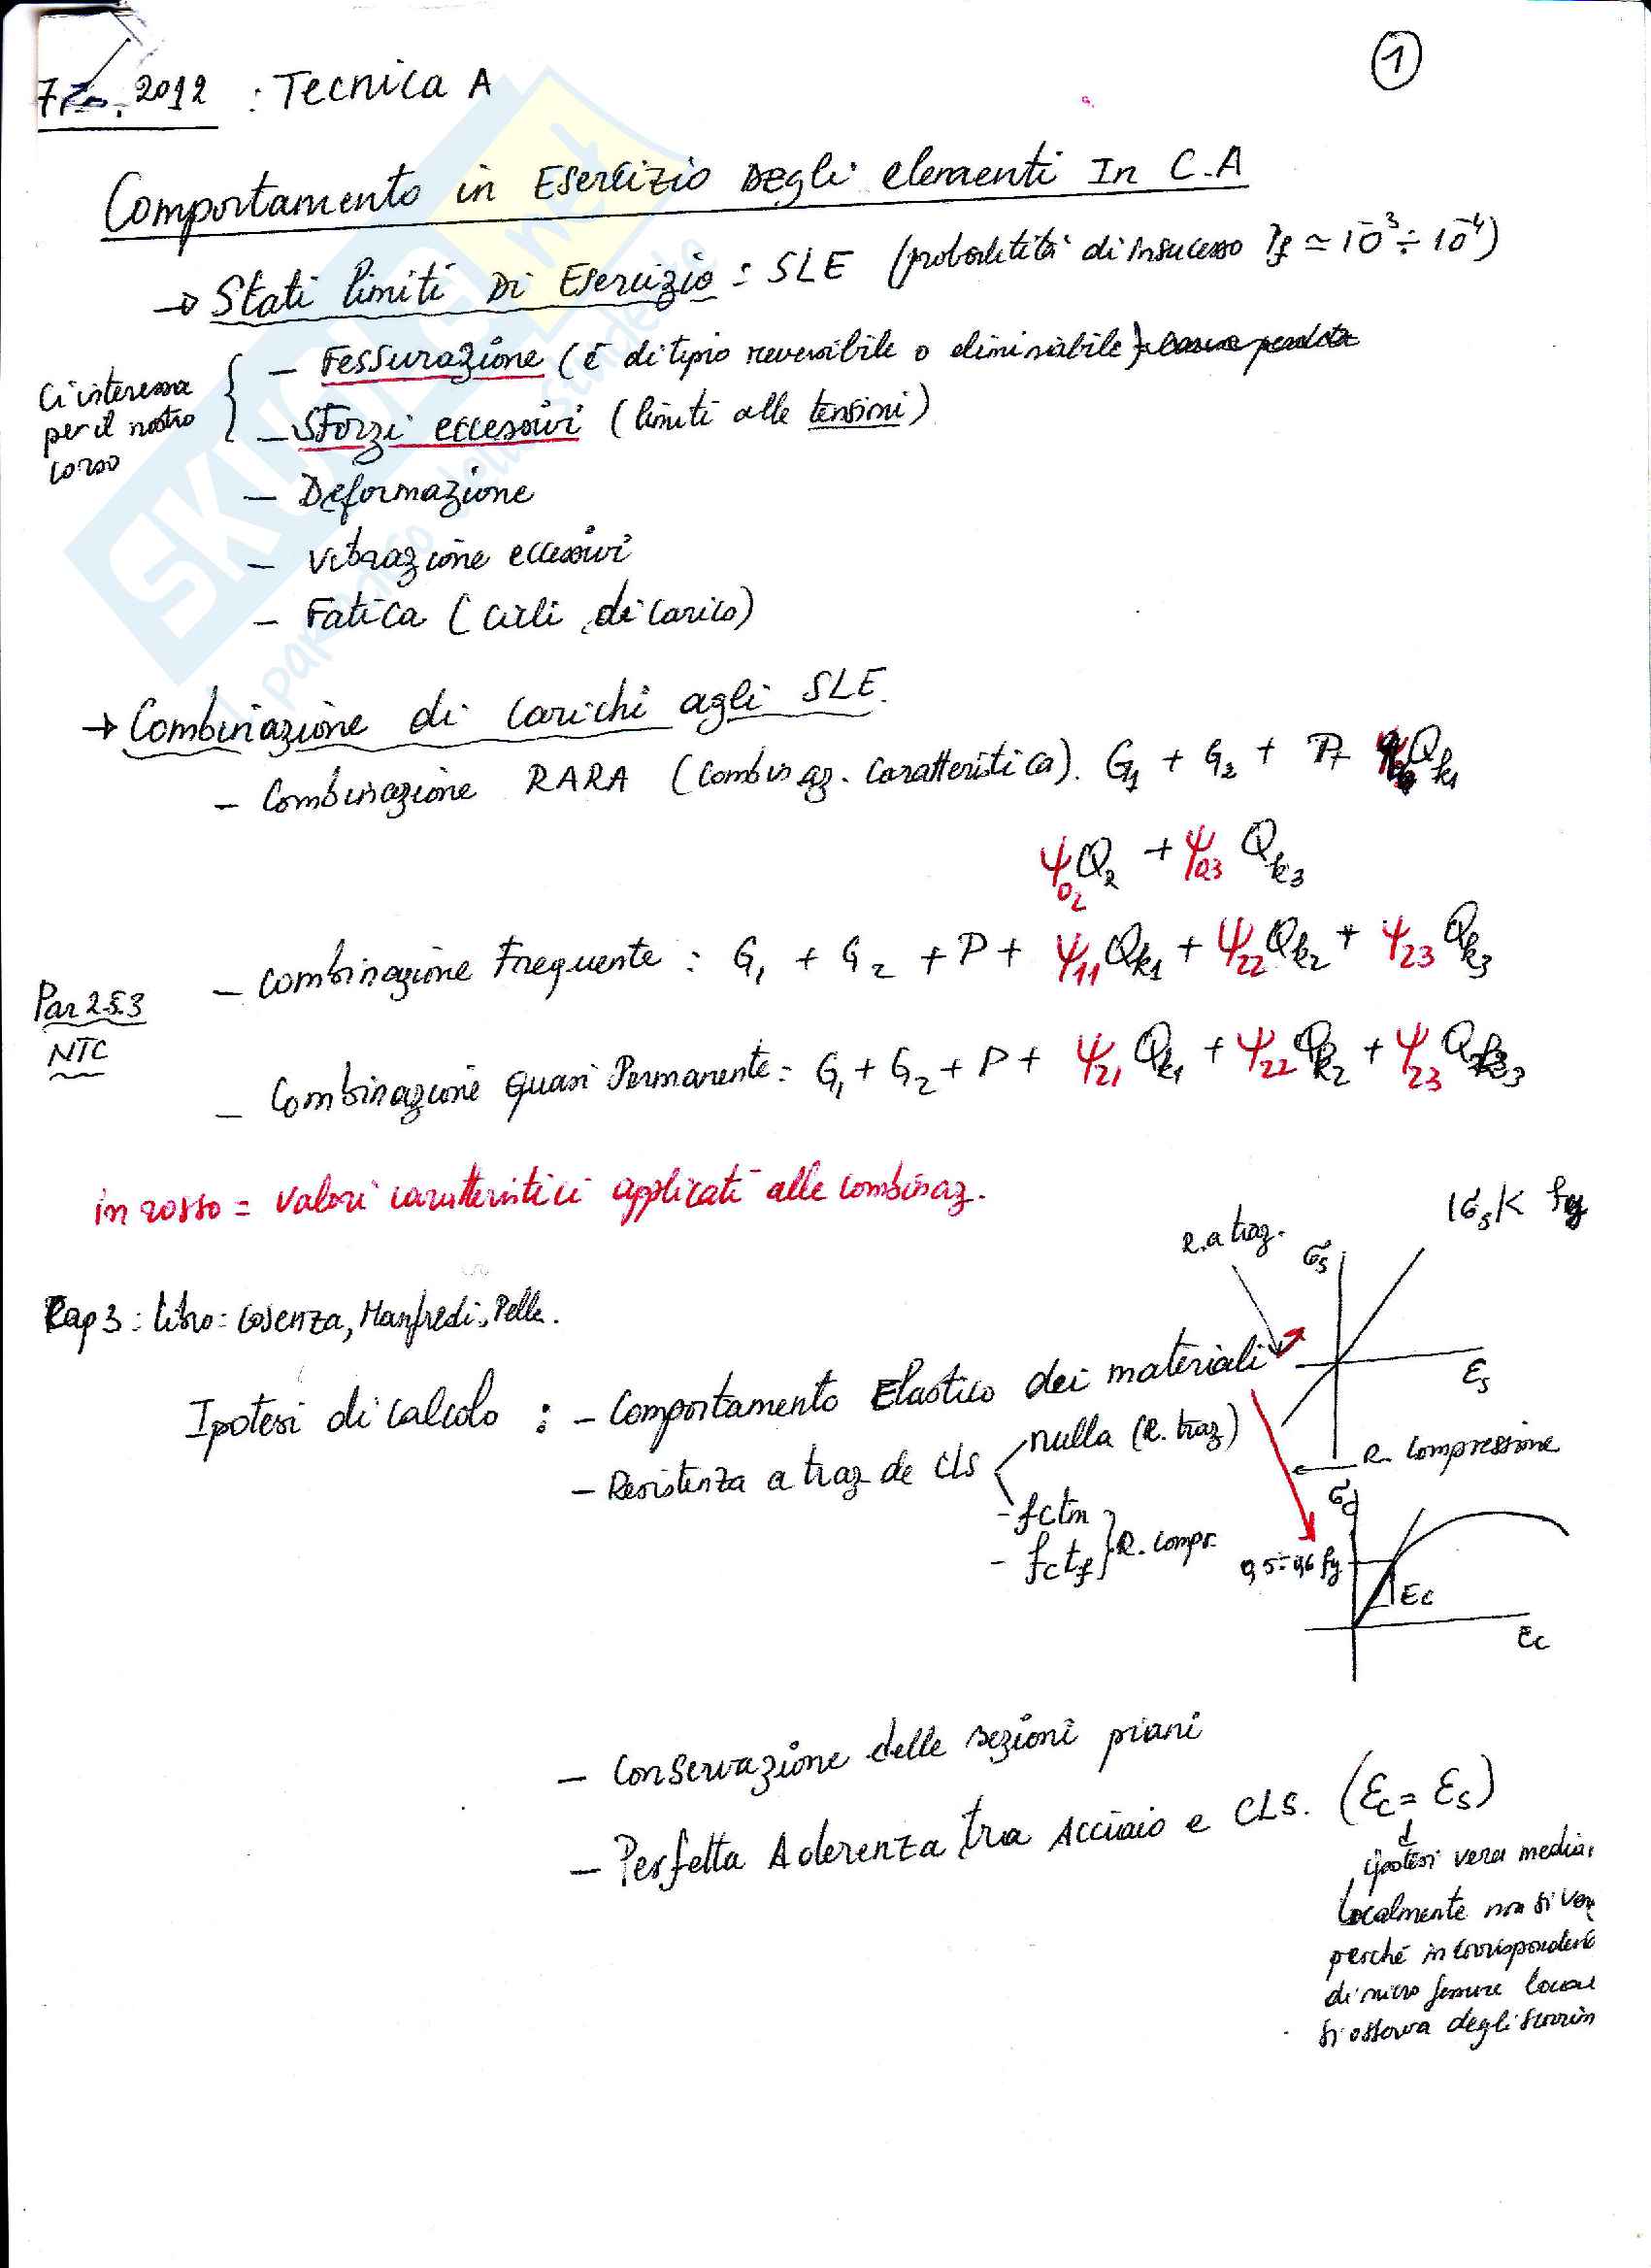 1
2012 : Tecnica A
Comportamento in Esercizio Degli elementi In C.A
→ Stati limiti Di Esercizio : SLE (probabilità di insucesso Pf ≃ 10⁻³ ÷ 10⁻⁴)
Ci interessa per il nostro corso
- Fessurazione (è di tipio reversibile o eliminabile)
- Sforzi eccessivi (limiti alle tensioni)
- Deformazione
- Vibrazione eccessivi
- Fatica (cicli di carico)
→ Combinazione di carichi agli SLE.
- Combinazione RARA (Combinaz. caratteristica). G₁ + G₂ + P + Qk1
ψ02 Q2 + ψ03 Qk3
- Combinazione Frequente : G₁ + G₂ + P + ψ11 Qk1 + ψ22 Qk2 + ψ23 Qk3
Par 2.5.3
NTC
- Combinazione quasi Permanente : G₁ + G₂ + P + ψ21 Qk1 + ψ22 Qk2 + ψ23 Qk3
in rosso = valori caratteristici applicati alle combinaz.
|σs| < fy
R. a traz.
σs
εs
Cap 3 : libro : Cosenza, Manfredi, Pelle.
Ipotesi di calcolo : - Comportamento Elastico dei materiali
- Resistenza a traz de CLS
nulla (R. traz)
- fctm
- fctf
R. compr.
R. Compressione
σc
0,5÷0,6 fy
Ec
εc
- Conservazione delle sezioni piani
- Perfetta Aderenza tra Acciaio e CLS. (εc = εs)
ipotesi vera media,
localmente non si
perché in
di micro fessure
si osserva degli
SKUOLA.net
il paradiso dello studente